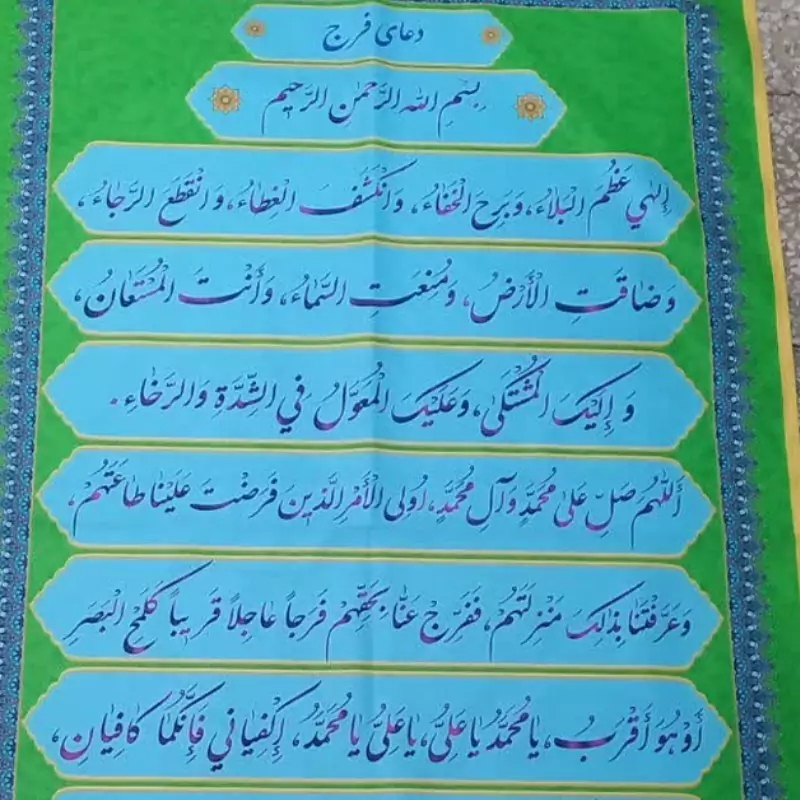 دعای فرج
بِسْمِ اللهِ الرَّحْمٰنِ الرَّحِيْمِ
إِلٰهِي عَظُمَ الْبَلاٰءُ، وَبَرِحَ الْخَفٰاءُ، وَانْكَشَفَ الْغِطٰاءُ، وَانْقَطَعَ الرَّجٰاءُ،
وَضٰاقَتِ الْأَرْضُ، وَمُنِعَتِ السَّمٰاءُ، وَأَنْتَ الْمُسْتَعٰانُ،
وَ إِلَيْكَ الْمُشْتَكىٰ، وَعَلَيْكَ الْمُعَوَّلُ فِي الشِّدَّةِ وَالرَّخٰاءِ.
أَللّٰهُمَّ صَلِّ عَلىٰ مُحَمَّدٍ وَآلِ مُحَمَّدٍ، اُولِى الْأَمْرِ الَّذِينَ فَرَضْتَ عَلَيْنٰا طٰاعَتَهُمْ،
وَعَرَّفْتَنٰا بِذٰلِكَ مَنْزِلَتَهُمْ، فَفَرِّجْ عَنّٰا بِحَقِّهِمْ فَرَجاً عٰاجِلاً قَرِيباً كَلَمْحِ الْبَصَرِ
أَوْ هُوَ أَقْرَبُ، يٰا مُحَمَّدُ يٰا عَلِيُّ، يٰا عَلِيُّ يٰا مُحَمَّدُ، إِكْفِيٰانِي فَإِنَّكُمٰا كٰافِيٰانِ،